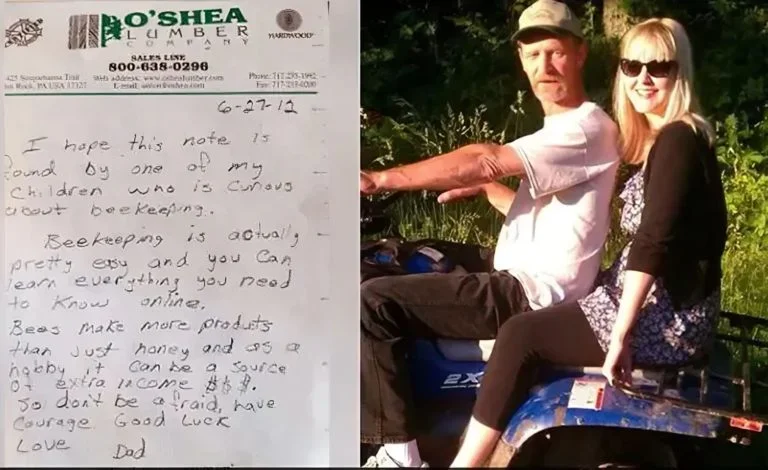 O'SHEA
LUMBER
COMPANY
HARDWOOD
SALES LINE
800-638-0296
425 Susquehanna Trail Web address: www.oshealumber.com Phone: 717-235-1992
Rock, PA USA 17327 E-mail: Fax: 717-235-0200
6-27-12
I hope this note is
ound by one of my
children who is curious
about beekeeping.
Beekeeping is actually
pretty easy and you can
learn everything you need
to know online.
Bees make more products
than just honey and as a
hobby it can be a source
of extra income $$$.
So don't be afraid, have
courage Good Luck
Love Dad
2X